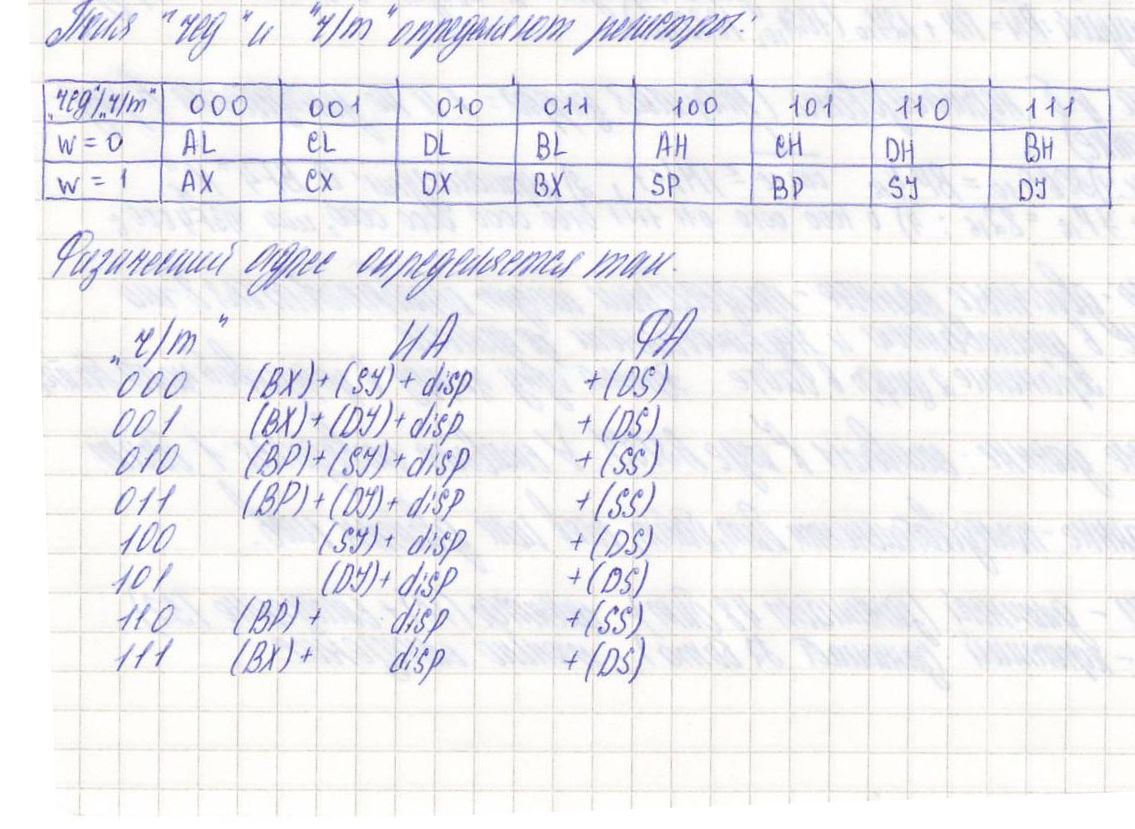 Поля "reg" и "r/m" определяют регистры:
"reg"/"r/m" 000 001 010 011 100 101 110 111
w = 0 AL CL DL BL AH CH DH BH
w = 1 AX CX DX BX SP BP SI DI
Физический адрес определяется так.
"r/m" ИА ФА
000 (BX)+(SI)+disp +(DS)
001 (BX)+(DI)+disp +(DS)
010 (BP)+(SI)+disp +(SS)
011 (BP)+(DI)+disp +(SS)
100 (SI)+disp +(DS)
101 (DI)+disp +(DS)
110 (BP)+ disp +(SS)
111 (BX)+ disp +(DS)